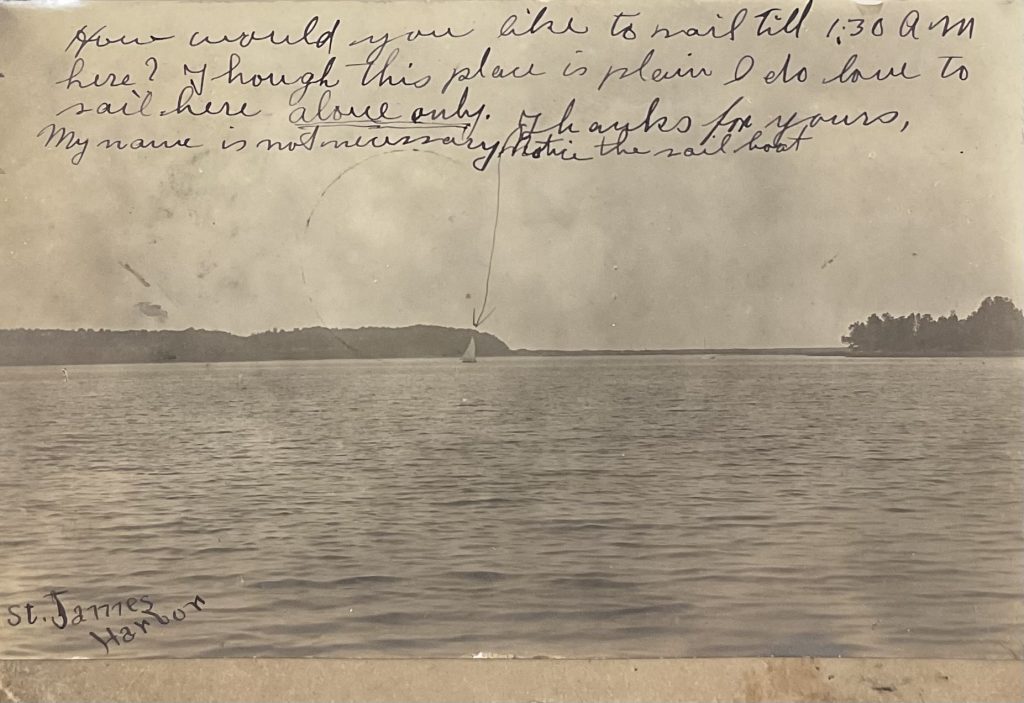 How would you like to sail till 1:30 A M
here? Though this place is plain I do love to
sail here alone only. Thanks for yours,
My name is not necessary Notice the sail boat
St. James
Harbor